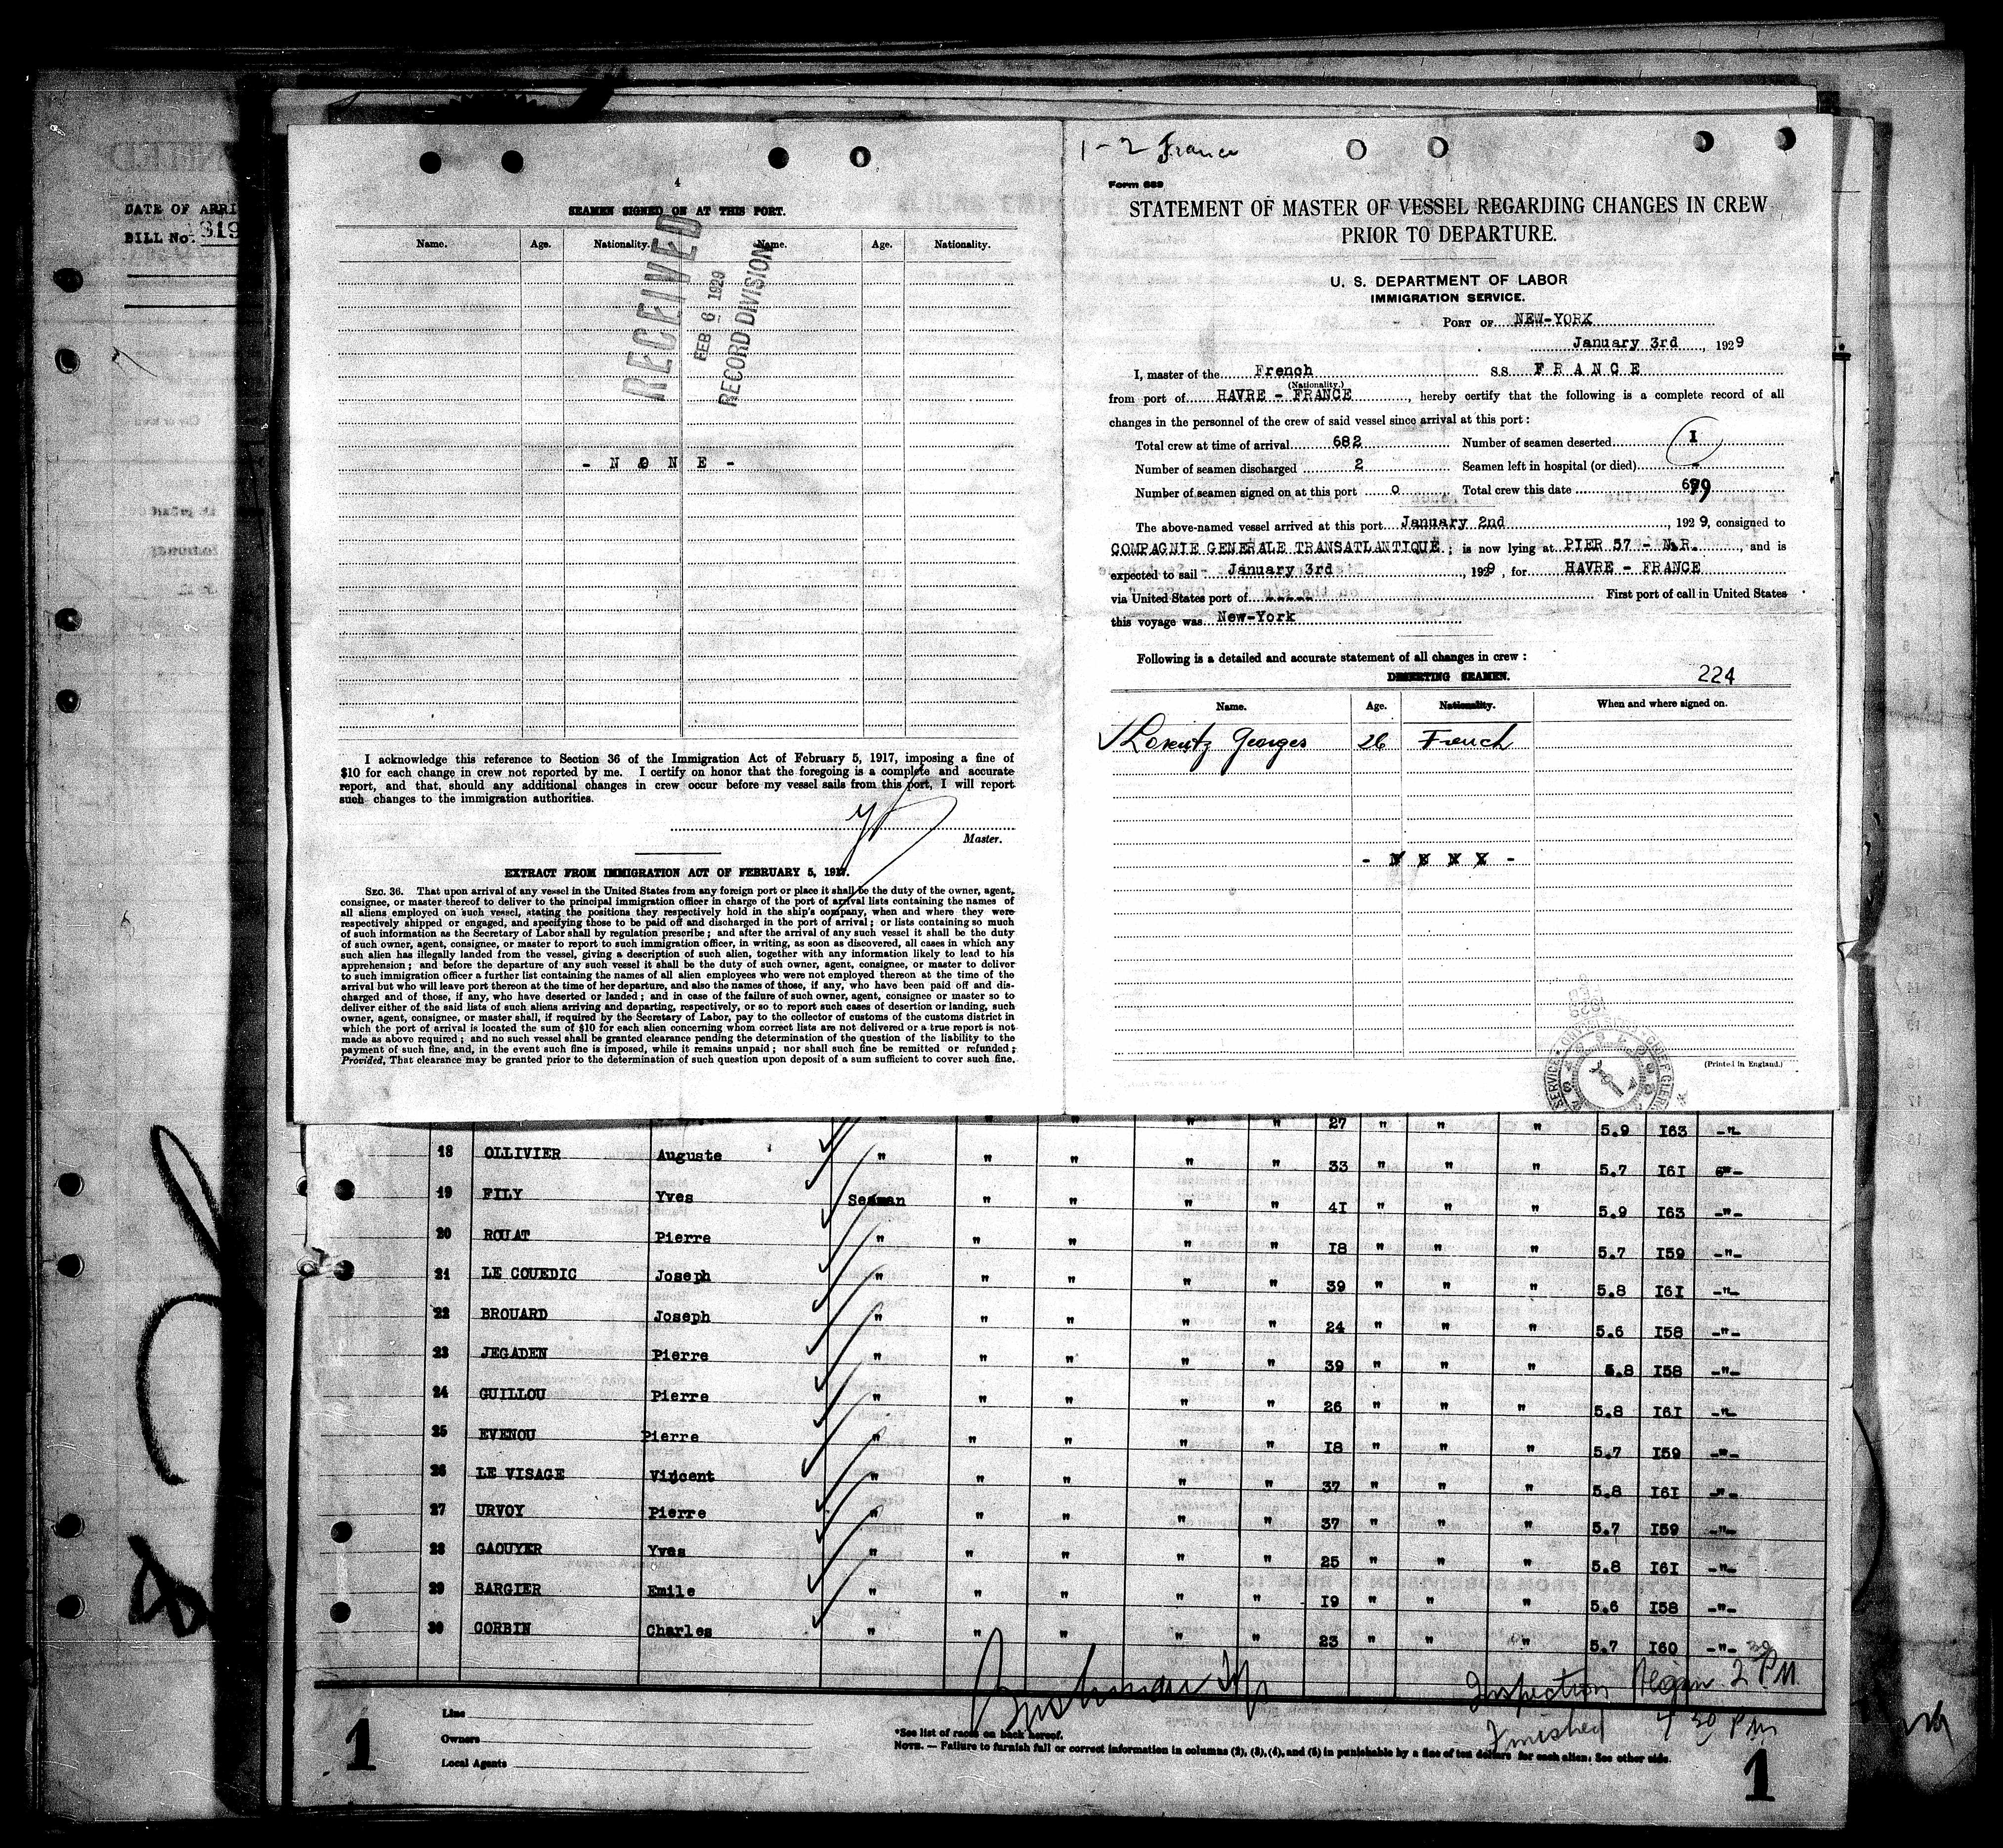 DATE OF ARRI
BILL No. 1319
4
SEAMEN SIGNED ON AT THIS PORT.
Name. Age. Nationality. Name. Age. Nationality.
RECEIVED
FEB 6 1929
RECORD DIVISION
- N O N E -
I acknowledge this reference to Section 36 of the Immigration Act of February 5, 1917, imposing a fine of
$10 for each change in crew not reported by me. I certify on honor that the foregoing is a complete and accurate
report, and that, should any additional changes in crew occur before my vessel sails from this port, I will report
such changes to the immigration authorities.
Master.
EXTRACT FROM IMMIGRATION ACT OF FEBRUARY 5, 1917.
SEC. 36. That upon arrival of any vessel in the United States from any foreign port or place it shall be the duty of the owner, agent,
consignee, or master thereof to deliver to the principal immigration officer in charge of the port of arrival lists containing the names of
all aliens employed on such vessel, stating the positions they respectively hold in the ship's company, when and where they were
respectively shipped or engaged, and specifying those to be paid off and discharged in the port of arrival; or lists containing so much
of such information as the Secretary of Labor shall by regulation prescribe; and after the arrival of any such vessel it shall be the duty
of such owner, agent, consignee, or master to report to such immigration officer, in writing, as soon as discovered, all cases in which any
such alien has illegally landed from the vessel, giving a description of such alien, together with any information likely to lead to his
apprehension; and before the departure of any such vessel it shall be the duty of such owner, agent, consignee, or master to deliver
to such immigration officer a further list containing the names of all alien employees who were not employed thereon at the time of the
arrival but who will leave port thereon at the time of her departure, and also the names of those, if any, who have been paid off and dis-
charged and of those, if any, who have deserted or landed; and in case of the failure of such owner, agent, consignee or master so to
deliver either of the said lists of such aliens arriving and departing, respectively, or so to report such cases of desertion or landing, such
owner, agent, consignee, or master shall, if required by the Secretary of Labor, pay to the collector of customs of the customs district in
which the port of arrival is located the sum of $10 for each alien concerning whom correct lists are not delivered or a true report is not
made as above required; and no such vessel shall be granted clearance pending the determination of the question of the liability to the
payment of such fine, and, in the event such fine is imposed, while it remains unpaid; nor shall such fine be remitted or refunded;
Provided, That clearance may be granted prior to the determination of such question upon deposit of a sum sufficient to cover such fine.
1-2 France
Form 689
STATEMENT OF MASTER OF VESSEL REGARDING CHANGES IN CREW
PRIOR TO DEPARTURE.
U. S. DEPARTMENT OF LABOR
IMMIGRATION SERVICE.
PORT OF NEW-YORK
January 3rd, 1929
I, master of the French ss FRANCE
(Nationality.)
from port of HAVRE - FRANCE, hereby certify that the following is a complete record of all
changes in the personnel of the crew of said vessel since arrival at this port:
Total crew at time of arrival 682 Number of seamen deserted I
Number of seamen discharged 2 Seamen left in hospital (or died) -
Number of seamen signed on at this port 0 Total crew this date 679
The above-named vessel arrived at this port January 2nd, 1929, consigned to
COMPAGNIE GENERALE TRANSATLANTIQUE; is now lying at PIER 57 - N.R., and is
expected to sail January 3rd, 1929, for HAVRE - FRANCE
via United States port of ------ First port of call in United States
this voyage was New-York
Following is a detailed and accurate statement of all changes in crew:
DESERTING SEAMEN. 224
Name. Age. Nationality. When and where signed on.
✓ Lorentz Georges 26 French
(Printed in England.)
27 " " " 5.9 I63 -"-
18 OLLIVIER Auguste " " " " " 33 " " " 5.7 I6I
19 FILY Yves Seaman " " " " 4I " " " 5.9 I63 -"-
20 ROLAT Pierre " " " " " I8 " " " 5.7 I59 -"-
21 LE COUEDIC Joseph " " " " " 39 " " " 5.8 I6I -"-
22 BROUARD Joseph " " " " " 24 " " " 5.6 I58 -"-
23 JEGADEN Pierre " " " " " 39 " " " 5.8 I58 -"-
24 GUILLOU Pierre " " " " " 26 " " " 5.8 I6I -"-
25 EVENOU Pierre " " " " " I8 " " " 5.7 I59 -"-
26 LE VISAGE Vincent " " " " " 37 " " " 5.8 I6I -"-
27 URVOY Pierre " " " " " 37 " " " 5.7 I59 -"-
28 GAOUYER Yves " " " " " 25 " " " 5.8 I6I -"-
29 BARGIER Emile " " " " " I9 " " " 5.6 I58 -"-
30 CORBIN Charles " " " " " 23 " " " 5.7 I60 -"-
Inspection Began 2 PM
Finished 4 30 PM
Line
Owners
Local Agents
*See list of races on back hereof.
NOTE. — Failure to furnish full or correct information in columns (2), (3), (4), and (5) in punishable by a fine of ten dollars for each alien. See other side.
1
1